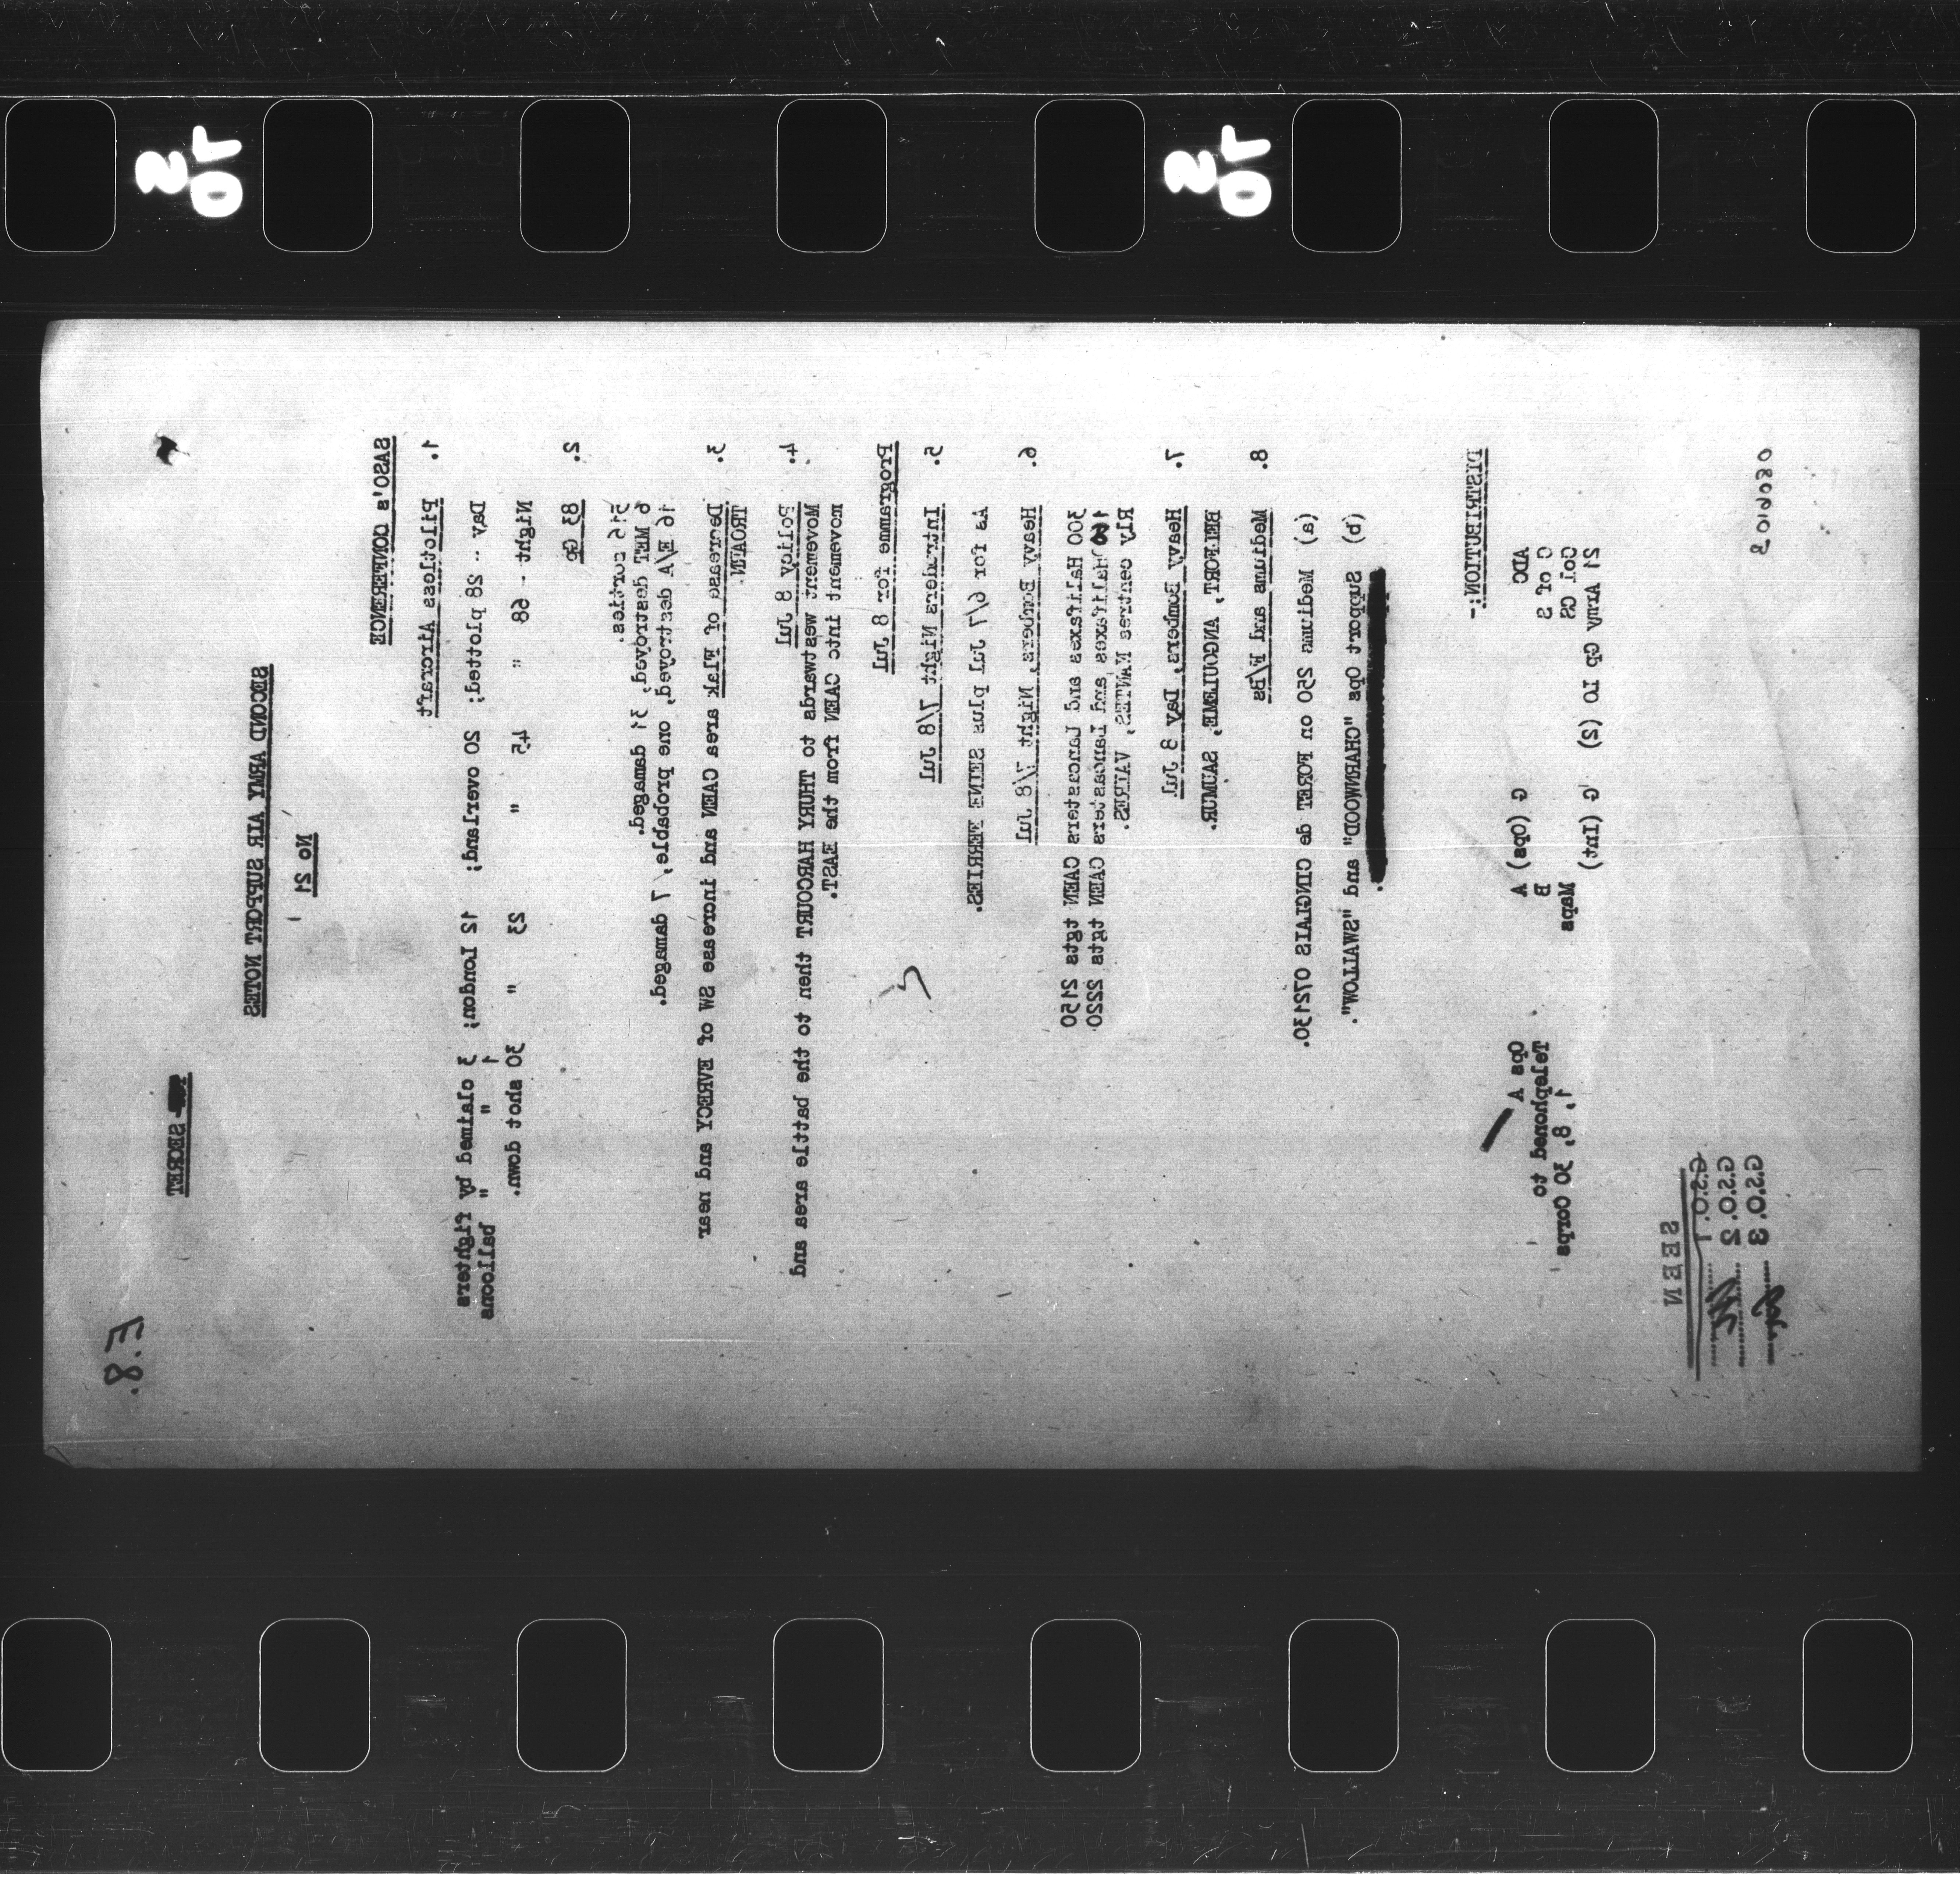 E.8.
SECRET
SECOND ARMY AIR SUPPORT NOTES
No 21
SASO's CONFERENCE
1. Pilotless Aircraft
Day - 28 plotted; 20 overland; 12 London; 3 claimed by fighters
1 " " balloons
Night - 68 " 45 " 23 " 30 shot down.
2. 83 Gp
515 sorties.
6 MET destroyed, 31 damaged.
16 E/A destroyed, one probable, 7 damaged.
3. Decrease of Flak area CAEN and increase SW of EVRECY and near
TROARN
4. Policy 8 Jul
Movement westwards to THURY HARCOURT then to the battle area and
movement into CAEN from the EAST.
Programme for 8 Jul
5. Intruders Night 7/8 Jul
As for 6/7 Jul plus SEINE FERRIES.
6. Heavy Bombers, Night 7/8 Jul
300 Halifaxes and Lancasters CAEN tgts 2150
Halifaxes and Lancasters CAEN tgts 2220
Rly centres NANTES, VAIRES.
7. Heavy Bombers, Day 8 Jul
BELFORT, ANGOULEME, SAUMUR.
8. Mediums and F/Bs
(a) Mediums 250 on FORET de CINGLAIS 072130.
(b) Support Ops "CHARNWOOD" and "SWALLOW".
DISTRIBUTION:-
ADC G (Ops) A Ops A
C of S B Telephoned to
Col GS Maps 1, 8, 30 Corps
21 Army Gp LO (2) G (Int)
SEEN
G.S.O. 1
G.S.O. 2
G.S.O. 3
080610B